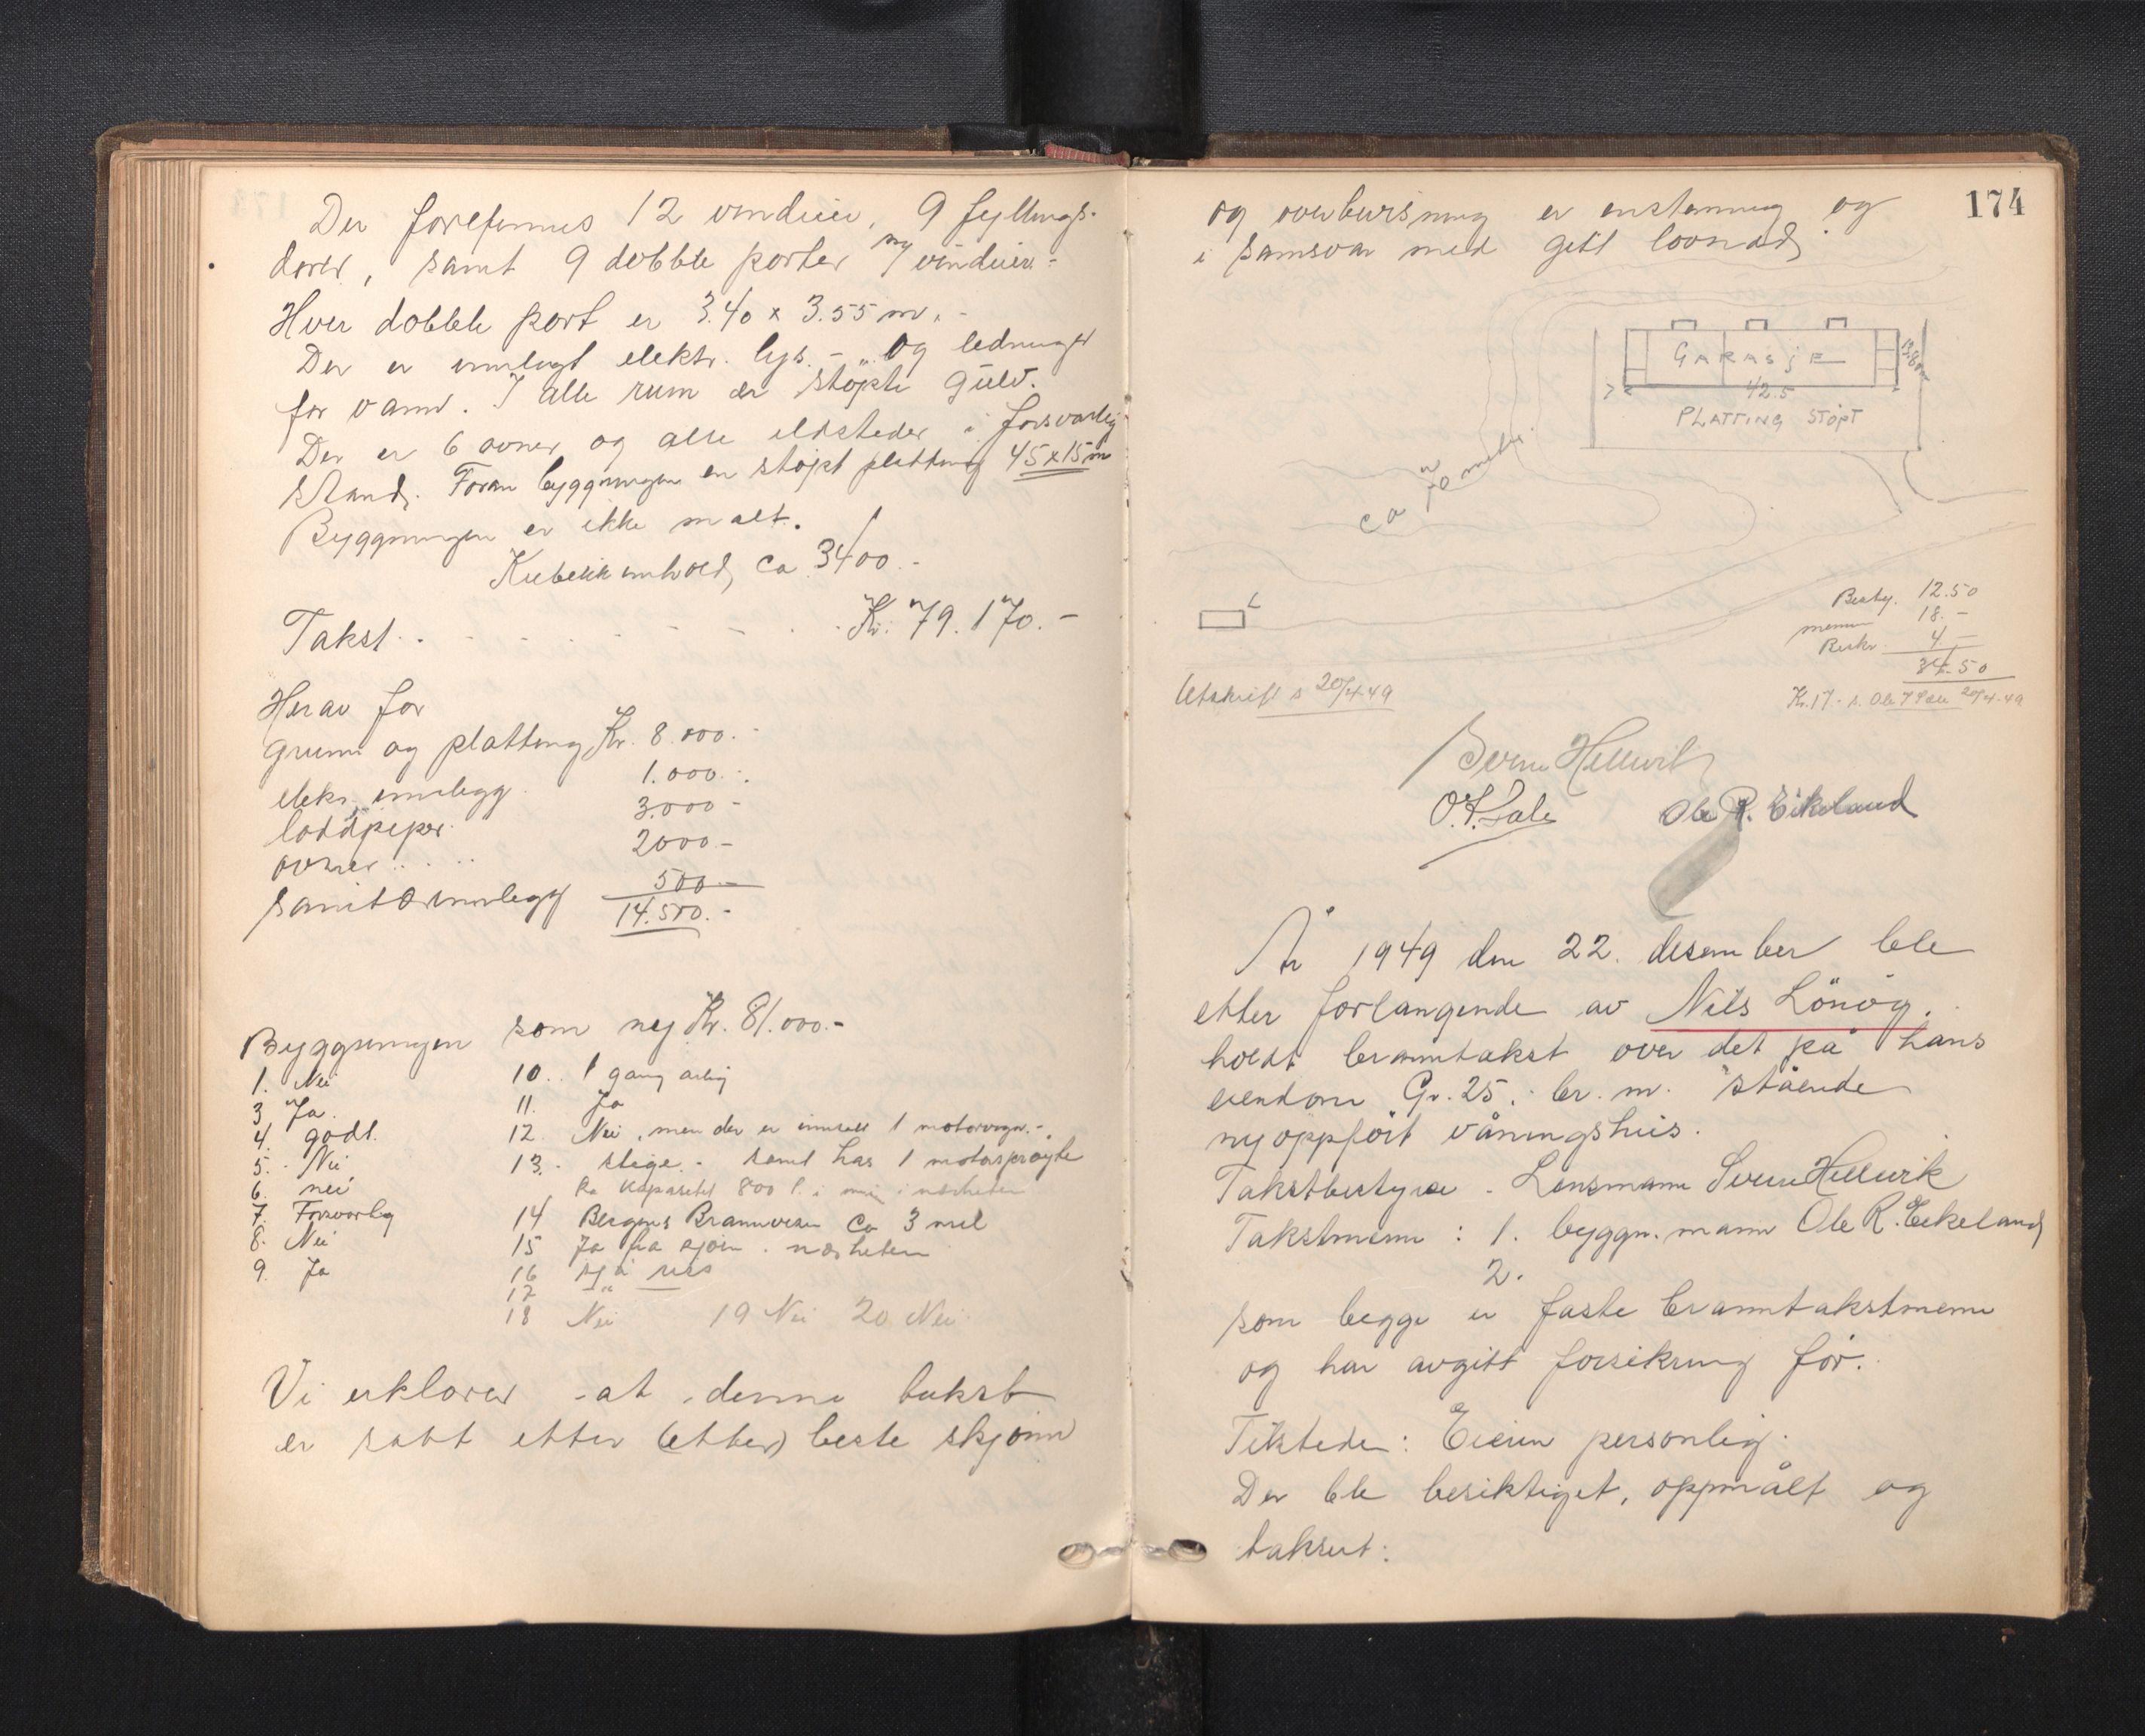 Der forefinnes 12 vinduer, 9 fyllings-
dører, samt 9 dobble porter m/ vinduer.-
Hver dobble port er 3.40 x 3.55 m. -
Der er innlagt elektr. lys. - og ledninger
for vann. I alle rum er støpte gulv.
Der er 6 ovner og alle ildsteder i forsvarlig
stand. Foran byggningen en støpt platting 45x15 m
Byggningen er ikke malt.
Kubikkinnhold ca 3400.-
Takst . . - - - - . . Kr. 79.170.-
Herav for
grunn og platting Kr. 8.000.-
elektr. innlegg 1.000.-
loddpiper 3.000-
ovner . . . . 2000.-
sanitærinnlegg 500.-
14.500.-
Byggningen som ny Kr. 81.000.-
1. Nei
3 Ja.
4. godt.
5. Nei
6. nei
7. Forsvarlig
8. Nei
9. Ja
10. 1 gang årlig
11. Ja
12. Nei, men der er 1 motorvogn.-
13. stige. - samt har 1 motorsprøyte
ka kapasitet 800 l. i min i nærheten
14 Bergens Brannvesen ca 3 mil
15 Ja fra sjøen i nærheten
16
17 "
18 Nei 19 Nei 20 Nei
Vi erklærer at denne takst
er satt etter (etter) beste skjønn
174
og overbevisning er enstemmig og
i samsvar med gitt lovnad.
GARASJE
42.5
PLATTING STØPT
ca 70 meter.
Besty. 12.50
menn 18.-
Beskr. 4.-
34.50
Utskrift s 20/4 49
Kr. 17.- s. Ole 20/4-49
Sverre Hellevik
O.F. Dale Ole R. Eikeland
År 1949 den 22. desember ble
etter forlangende av Nils Lönög.
holdt branntakst over det på hans
eiendom Gr. 25. br. m. stående
nyoppført våningshus.
Takstbestyrer - Lensmann Sverre Hellevik
Takstmenn : 1. byggn. mann Ole R. Eikeland
2.
som begge er faste branntakstmenn
og har avgitt forsikring før.
Tilstede: Eieren personlig.
Der ble besiktiget, oppmålt og
taksert: